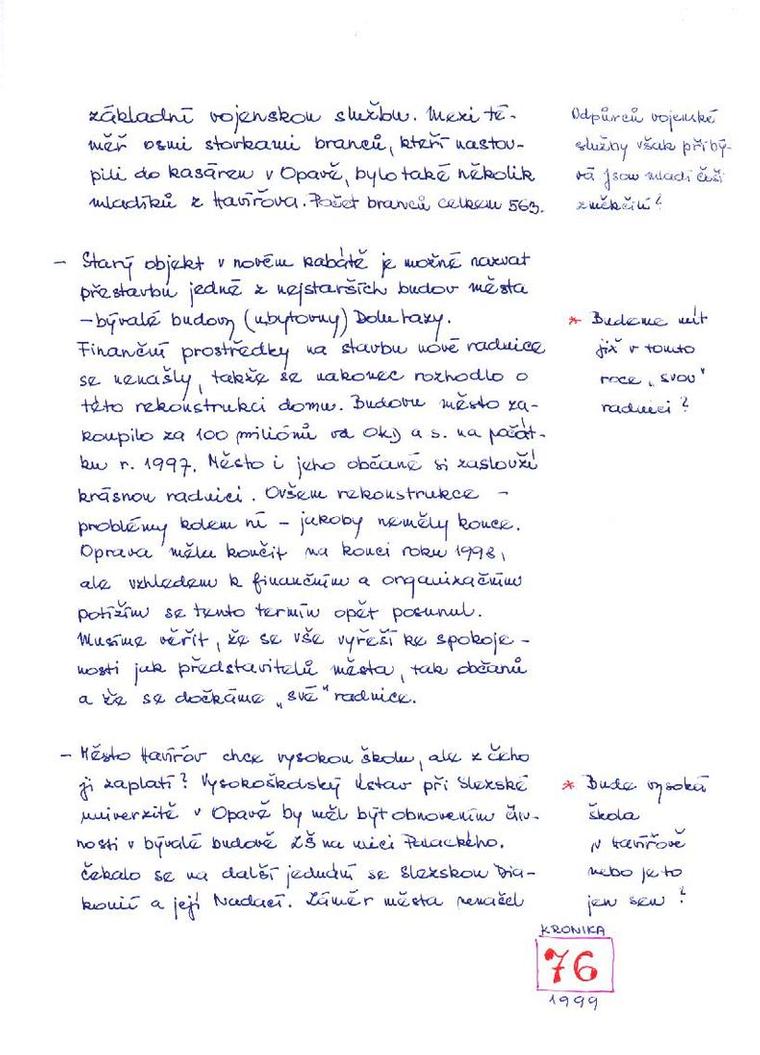 základní vojenskou službu. Mezi té-
měř osmi stovkami branců, kteří nastou-
pili do kasáren v Opavě, bylo také několik
mladíků z Havířova. Počet branců celkem 563.
Odpůrců vojenské
služby však přibý-
vá jsou mladí Češi
změkčilí?
- Starý objekt v novém kabátě je možné nazvat
přestavbu jedné z nejstarších budov města
- bývalé budovy (ubytovny) Dolu Lazy.
Finanční prostředky na stavbu nové radnice
se nenašly, takže se nakonec rozhodlo o
této rekonstrukci domu. Budovu město za-
koupilo za 100 miliónů od OKD a s. na počát-
ku r. 1997. Město i jeho občané si zaslouží
krásnou radnici. Ovšem rekonstrukce -
problémy kolem ní - jakoby neměly konce.
Oprava měla končit na konci roku 1998,
ale vzhledem k finančním a organizačním
potížím se tento termín opět posunul.
Musíme věřit, že se vše vyřeší ke spokoje-
nosti jak představitelů města, tak občanů
a že se dočkáme „své" radnice.
* Budeme mít
již v tomto
roce „svou"
radnici?
- Město Havířov chce vysokou školu, ale z čeho
ji zaplatí? Vysokoškolský ústav při Slezské
univerzitě v Opavě by měl být obnovením čin-
nosti v bývalé budově ZŠ na ulici Palackého.
Čekalo se na další jednání se Slezskou Dia-
konií a její Nadací. Záměr města nenašel
* Bude vysoká
škola
v Havířově
nebo je to
jen sen?
KRONIKA
76
1999